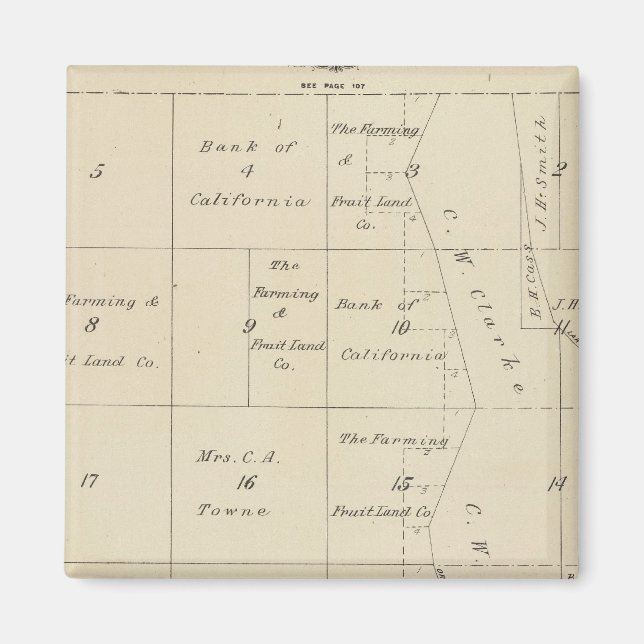 SEE PAGE 107
5
Bank of
4
California
The Farming
2
&
3
3
Fruit Land
Co.
4
C. W. Clarke
J. H. Smith
2
B. H. Cass
Farming &
8
it Land Co.
9
The
Farming
&
Fruit Land
Co.
1
Bank of
2
10
3
California
4
J. H.
11
17
Mrs. C. A.
16
Towne
1
The Farming
2
15
3
Fruit Land Co.
4
C. W.
14